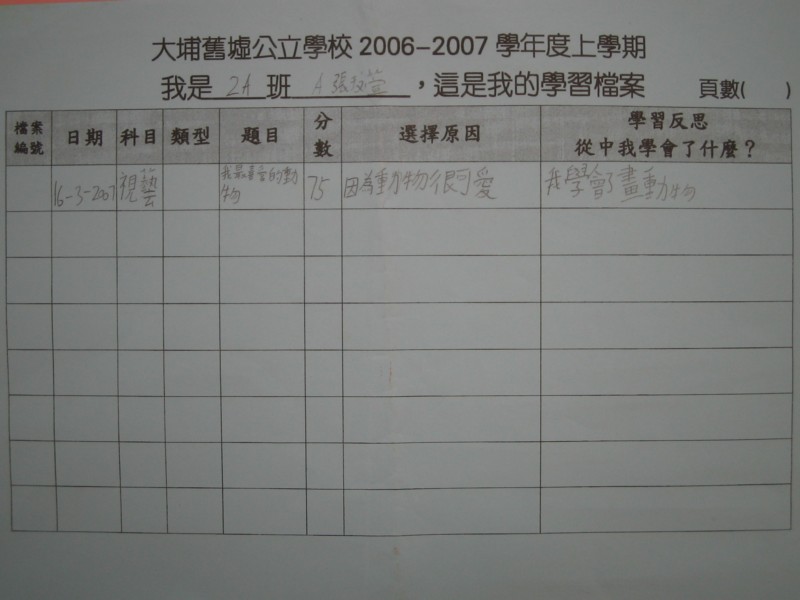 大埔舊墟公立學校 2006-2007 學年度上學期
我是 2A 班 A 張 萱 ，這是我的學習檔案 頁數( )
檔案編號 日期 科目 類型 題目 分數 選擇原因 學習反思
從中我學會了什麼？
16-3-2007 視藝 我最喜歡的動物 75 因為動物很可愛 我學會了畫動物